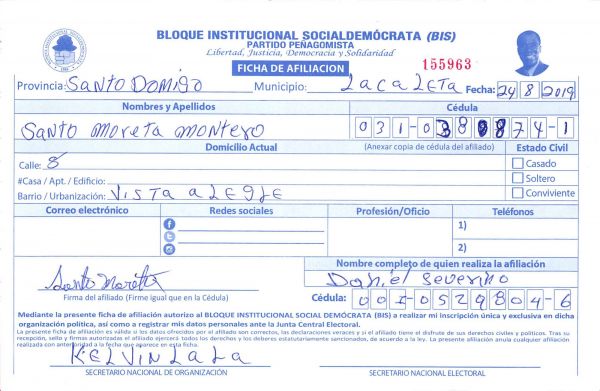 BLOQUE INSTITUCIONAL SOCIALDEMÓCRATA (BIS)
PARTIDO PEÑAGOMISTA
Libertad, Justicia, Democracia y Solidaridad
FICHA DE AFILIACION
155963
Provincia: SANTO DOMIGO Municipio: LACALETA Fecha: 24 8 2019
Nombres y Apellidos Cédula
Santo moreta montero 031-0380874-1
Domicilio Actual (Anexar copia de cédula del afiliado) Estado Civil
Calle: 8 Casado
#Casa / Apt. / Edificio: Soltero
Barrio / Urbanización: VISTA ALEGLE Conviviente
Correo electrónico Redes sociales Profesión/Oficio Teléfonos
1)
2)
Nombre completo de quien realiza la afiliación
Santo Moreta Daniel Severino
Firma del afiliado (Firme igual que en la Cédula) Cédula: 001-0529804-6
Mediante la presente ficha de afiliación autorizo al BLOQUE INSTITUCIONAL SOCIAL DEMÓCRATA (BIS) a realizar mi inscripción única y exclusiva en dicha
organización política, así como a registrar mis datos personales ante la Junta Central Electoral.
La presente ficha de afiliación es válida si los datos ofrecidos por el afiliado son correctos, las declaraciones veraces y si el afiliado tiene el disfrute de sus derechos civiles y políticos. Tras su
recepción, sello y firmas autorizadas el afiliado ejercerá todos los derechos y los deberes estatutariamente sancionados, de acuerdo a la ley. La presente afiliación anula cualquier afiliación
realizada con anterioridad a la fecha que aparece en esta ficha.
KELVIN LALA
SECRETARIO NACIONAL DE ORGANIZACIÓN SECRETARIO NACIONAL ELECTORAL